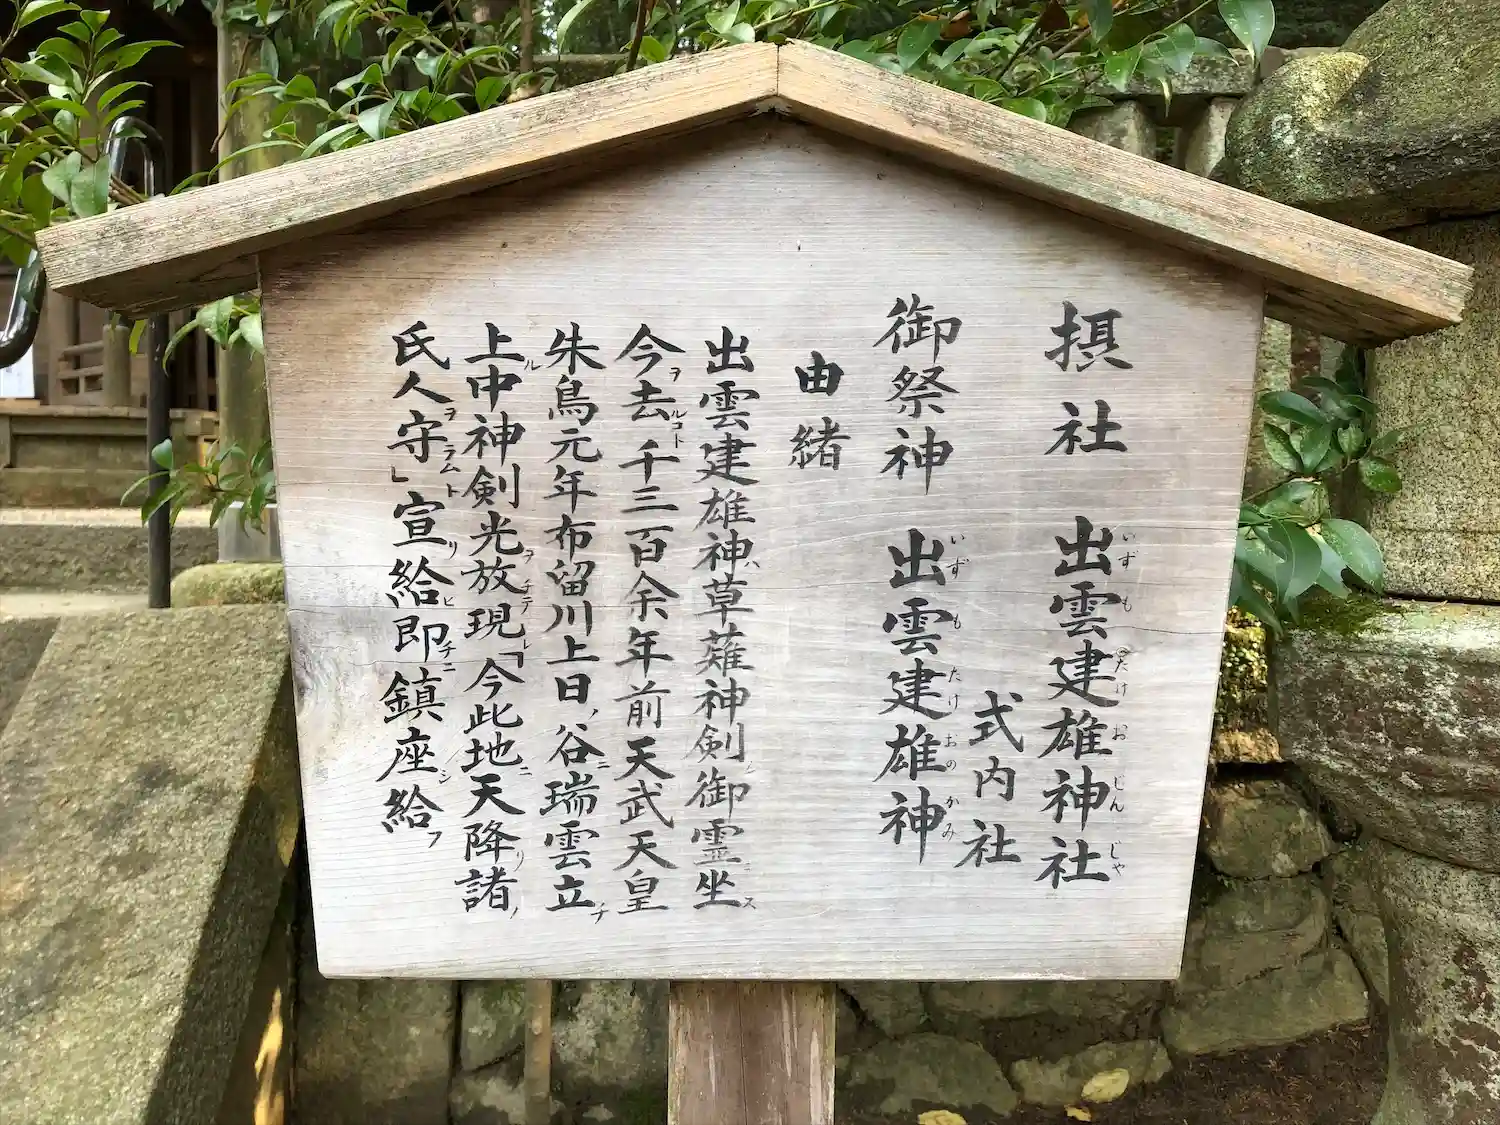 摂社 出雲建雄神社
いずもたけおじんじゃ
式内社
御祭神 出雲建雄神
いずもたけおのかみ
由緒
出雲建雄神ハ草薙神剣ノ御霊ニ坐ス
今ヲ去ルコト千三百余年前天武天皇
朱鳥元年布留川上日ノ谷ニ瑞雲立チ
上ル中神剣光ヲ放チテ現レ「今此地ニ天降リ諸ノ
氏人ヲ守ラムト」宣リ給ヒ即チニ鎮座シ給フ